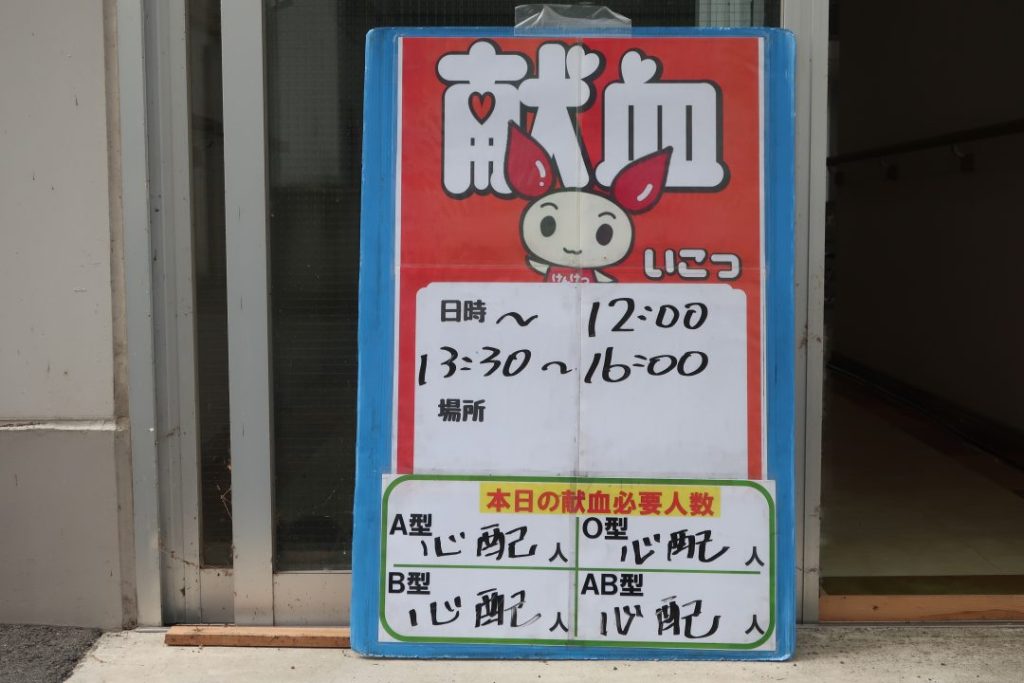 献血
いこっ
けんけつ
日時 ~ 12:00
13:30 ~ 16:00
場所
本日の献血必要人数
A型 心配 人
O型 心配 人
B型 心配 人
AB型 心配 人